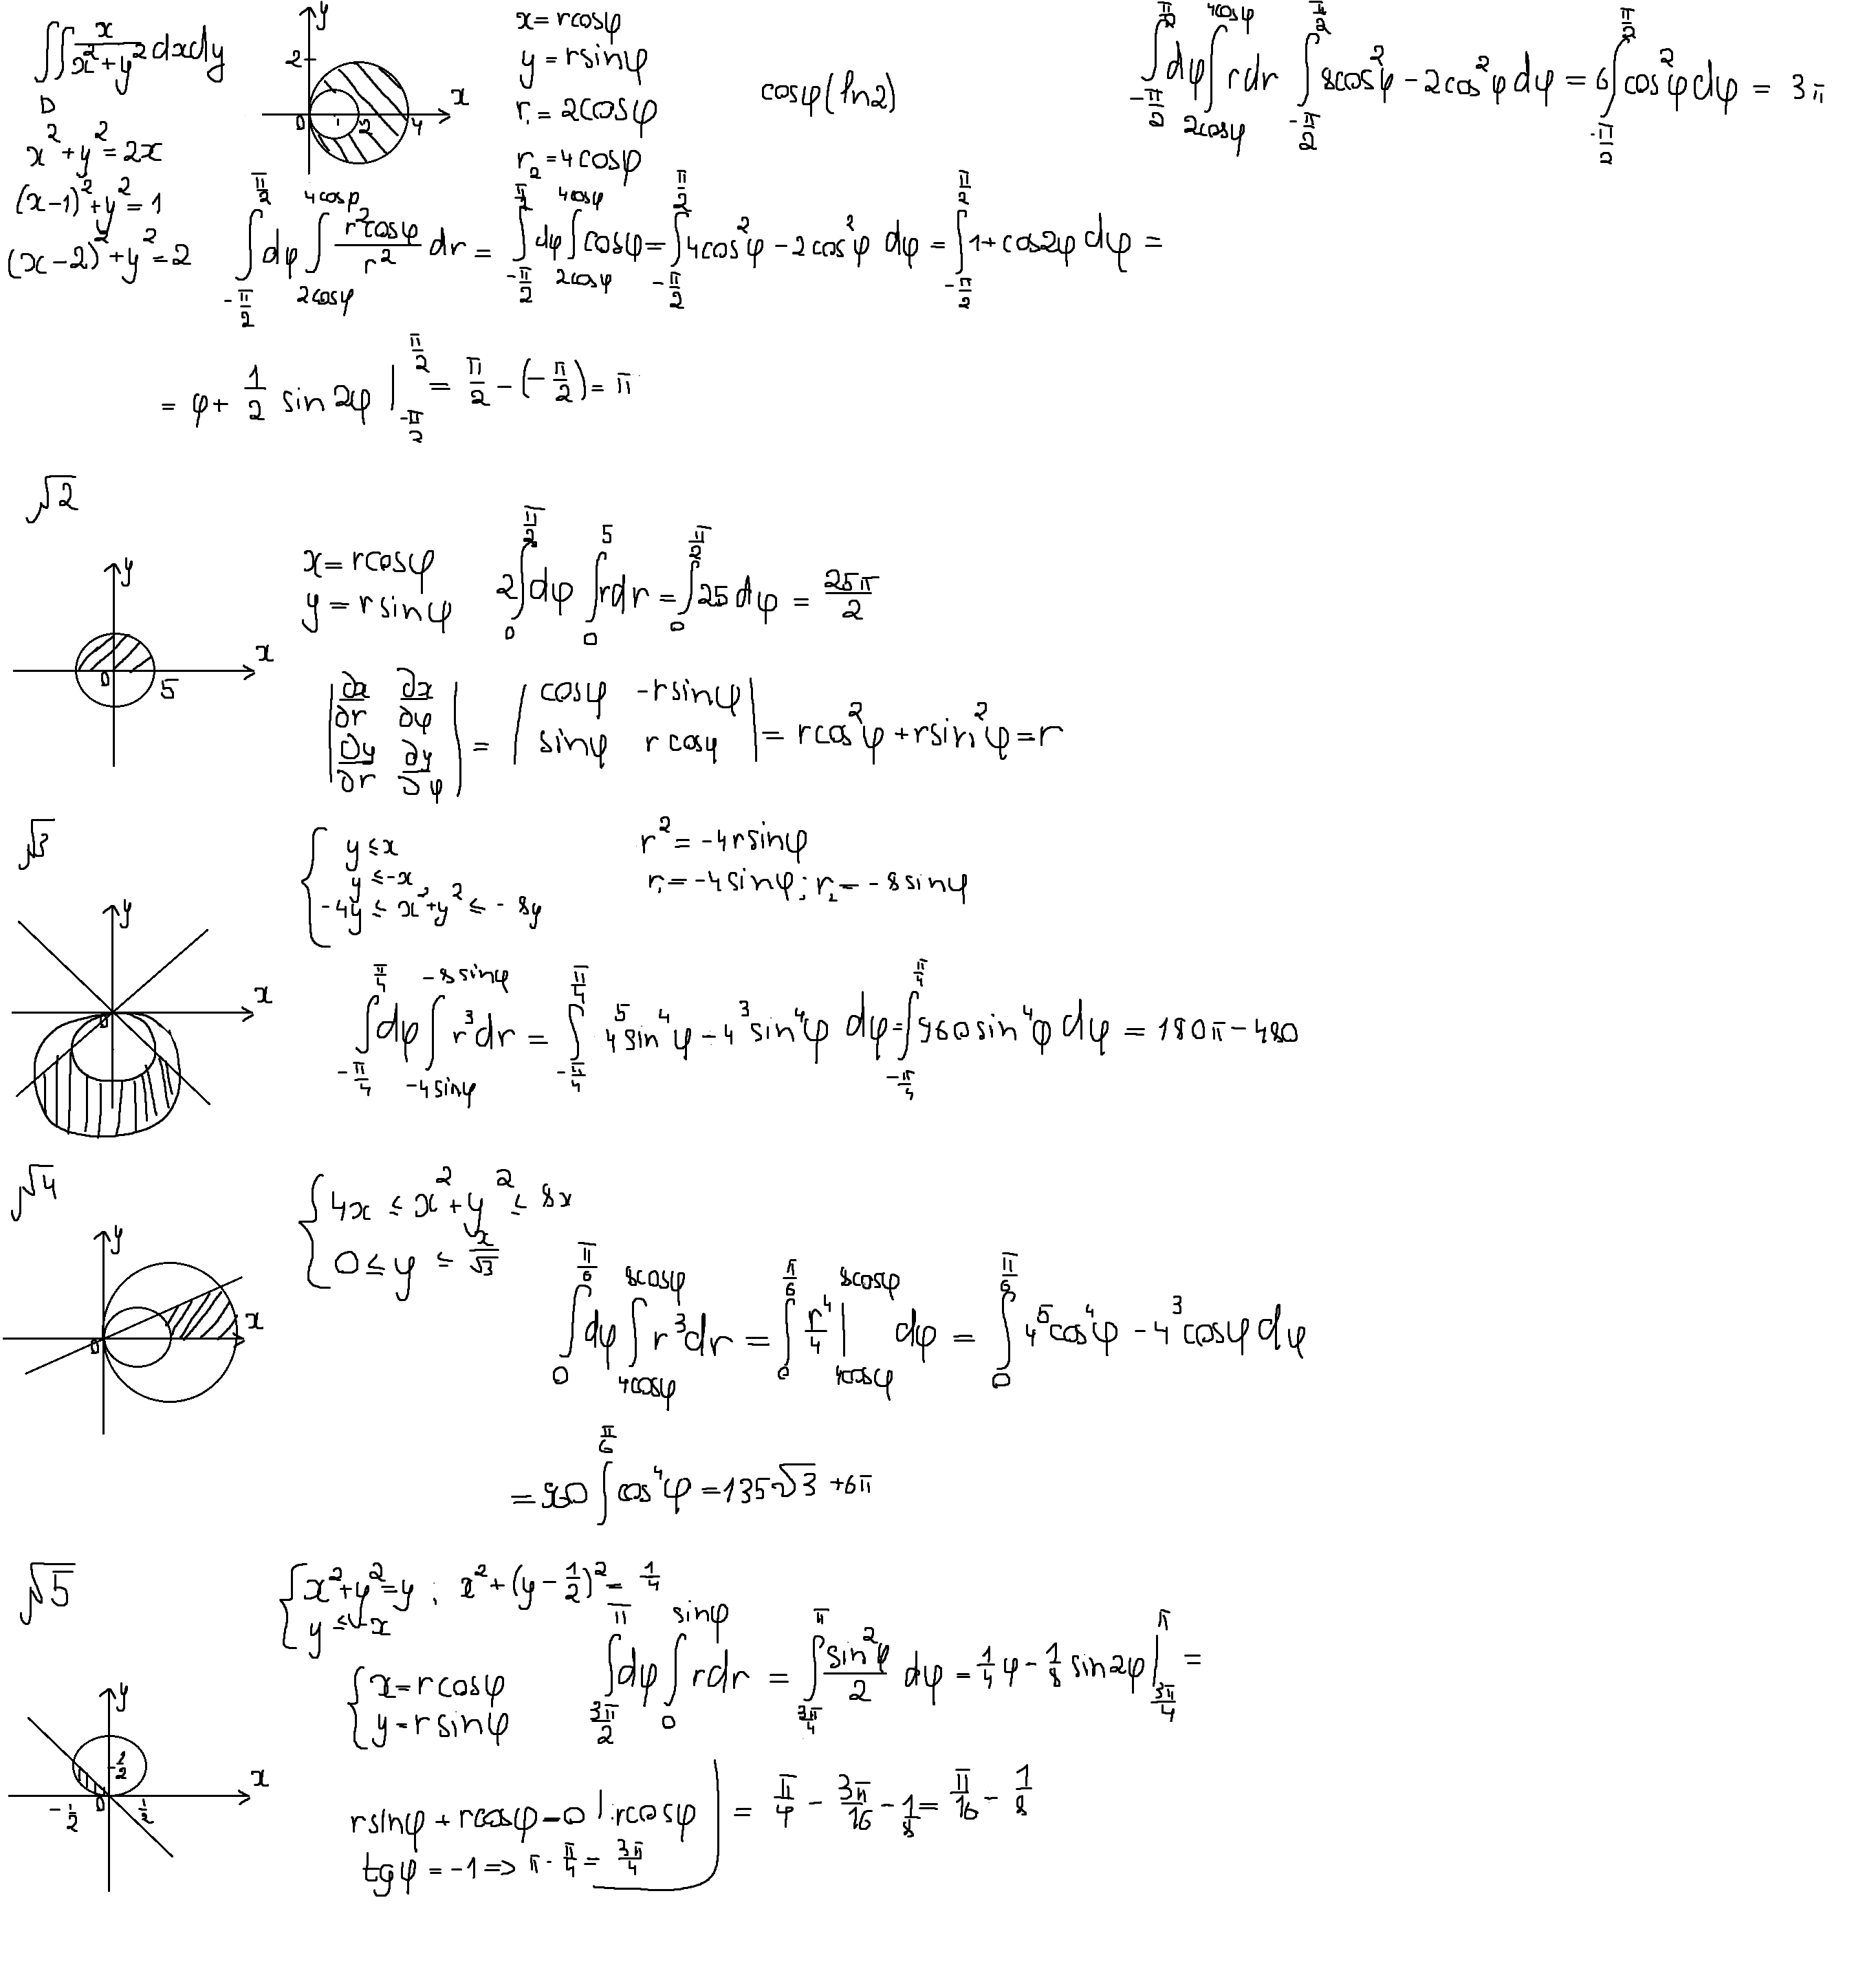 ∬_D x/(x²+y²) dxdy
x²+y²=2x
(x-1)²+y²=1
(x-2)²+y²=2
y
2
0 1 2 4 x
x=rcosφ
y=rsinφ
r₁=2cosφ
r₂=4cosφ
cosφ(ln2)
∫_{-π/2}^{π/2} dφ ∫_{2cosφ}^{4cosφ} rdr ∫_{-π/2}^{π/2} 8cos²φ-2cos²φ dφ = 6∫_{-π/2}^{π/2} cos²φ dφ = 3π
∫_{-π/2}^{π/2} dφ ∫_{2cosφ}^{4cosφ} r²cosφ/r² dr = ∫_{-π/2}^{π/2} dφ ∫_{2cosφ}^{4cosφ} cosφ = ∫_{-π/2}^{π/2} 4cos²φ-2cos²φ dφ = ∫_{-π/2}^{π/2} 1+cos2φ dφ =
= φ + 1/2 sin2φ |_{-π/2}^{π/2} = π/2 - (-π/2) = π
√2
y
0 5 x
x=rcosφ
y=rsinφ
2∫_0^{π/2} dφ ∫_0^5 rdr = ∫_0^{π/2} 25dφ = 25π/2
|∂x/∂r ∂x/∂φ|
|∂y/∂r ∂y/∂φ| = |cosφ -rsinφ|
|sinφ rcosφ| = rcos²φ+rsin²φ=r
√3
y
0 x
{ y≤x
y≤-x
-4y ≤ x²+y² ≤ -8y
r²=-4rsinφ
r₁=-4sinφ; r₂=-8sinφ
∫_{-π/4}^{π/4} dφ ∫_{-4sinφ}^{-8sinφ} r³dr = ∫_{-π/4}^{π/4} 4⁵sin⁴φ-4³sin⁴φ dφ = ∫_{-π/4}^{π/4} 960sin⁴φ dφ = 180π-480
√4
y
0 x
{ 4x ≤ x²+y² ≤ 8x
0 ≤ y ≤ x/√3
∫_0^{π/6} dφ ∫_{4cosφ}^{8cosφ} r³dr = ∫_0^{π/6} r⁴/4 |_{4cosφ}^{8cosφ} dφ = ∫_0^{π/6} 4⁵cos⁴φ - 4³cosφ dφ
= 960 ∫^{π/6} cos⁴φ = 135√3 + 6π
√5
y
1/2
-1/2 0 1/2 x
{ x²+y²=y ; x²+(y-1/2)²=1/4
y≤-x
{ x=rcosφ
y=rsinφ
∫_{3π/2}^{π} dφ ∫_0^{sinφ} rdr = ∫_{3π/4}^{π} sin²φ/2 dφ = 1/4 φ - 1/8 sin2φ |_{3π/4}^{π} =
rsinφ+rcosφ=0 |:rcosφ
tgφ=-1=> π-π/4=3π/4
= π/4 - 3π/16 - 1/8 = π/16 - 1/8